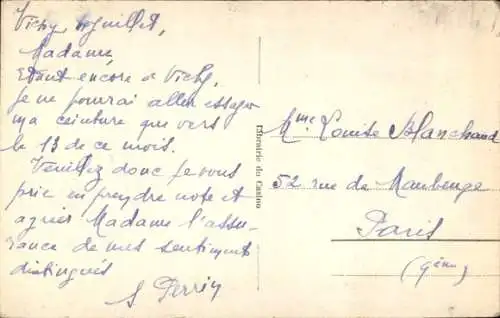 Vichy, juillet,
Madame,
Etant encore à Vichy,
je ne pourrai aller essayer
ma ceinture que vers
le 13 de ce mois.
Veuillez donc je vous
prie en prendre note et
agréer Madame l'assu-
rance de mes sentiments
distingués
S Perrin
Librairie du Casino
Mme Louise Blanchard
52 rue de Maubeuge
Paris